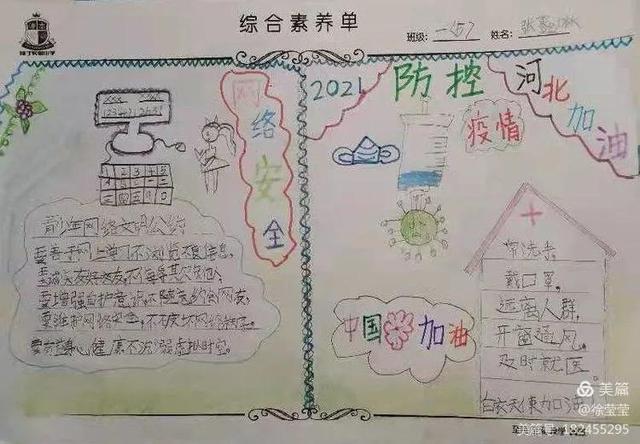 综合素养单
班级:
姓名:
网络安全
青少年网络文明公约
要善于网上学习不浏览不良信息,
要诚实友好交友,不侮辱欺诈他人,
要增强自护意识不随意约会网友,
要维护网络安全,不破坏网络秩序,
要有益身心健康不沉溺虚拟时空。
2021
防控
疫情
河北加油
中国
加油
常洗手
戴口罩。
远离人群。
开窗通风。
及时就医。
白衣天使加油
美篇
@徐莹莹
美篇号:182455295